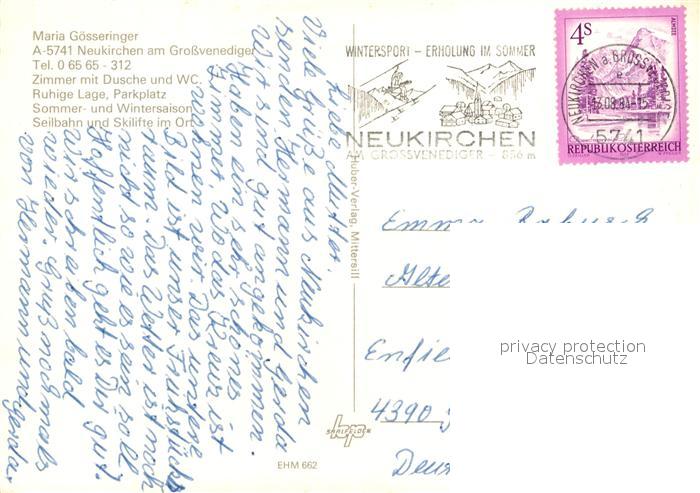 Maria Gösseringer
A-5741 Neukirchen am Großvenediger
Tel. 0 65 65 - 312
Zimmer mit Dusche und WC.
Ruhige Lage, Parkplatz
Sommer- und Wintersaison
Seilbahn und Skilifte im Ort
WINTERSPORT – ERHOLUNG IM SOMMER
NEUKIRCHEN
AM GROSSVENEDIGER – 856 m
4 S
ALMSEE
NEUKIRCHEN a. GROSSV
5741
REPUBLIK ÖSTERREICH
Mutter.
Viele Grüße aus Neukirchen
senden Hermann und Gerda
Wir sind gut angekommen.
Hab ein sehr schönes
Zimmer wo das Kreuz ist
wohnen wir. Das untere
Bild ist unser Frühstücks
raum. Das Wetter ist noch
nicht so wie es sein soll
Hoffentlich geht es Dir gut.
Wir schreiben bald
wieder. Gruß nochmals
von Hermann und Gerda
Huber-Verlag, Mittersill
Emma
Alte
Enfie
4390
Deu
privacy protection
Datenschutz
SAALFELDEN
EHM 662